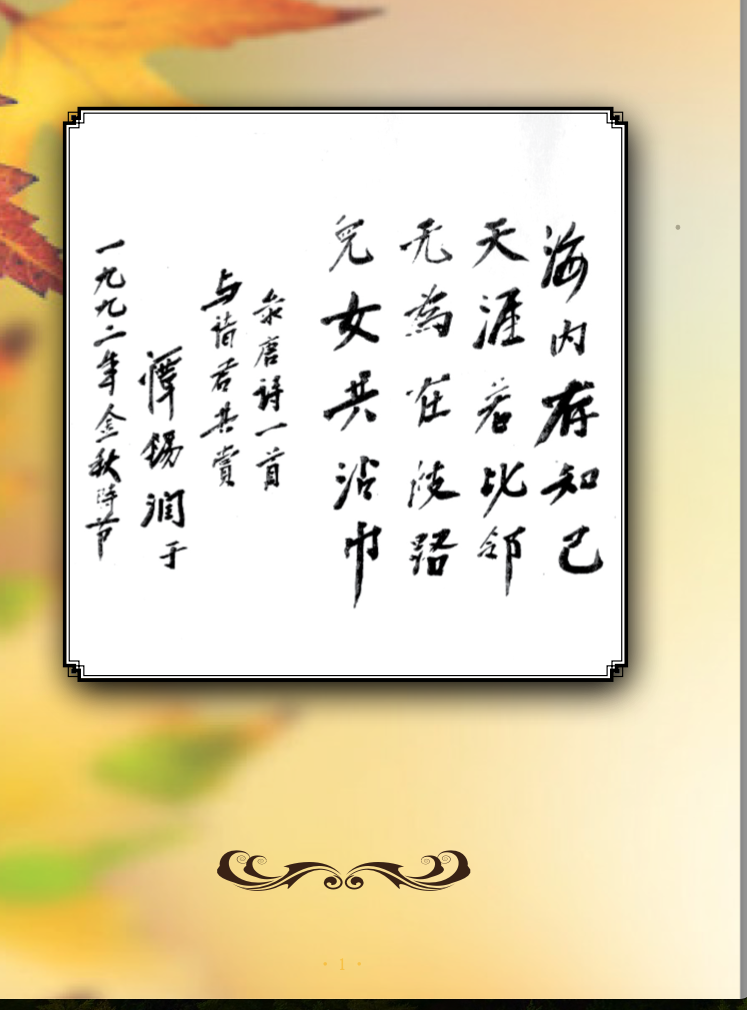 海内存知己
天涯若比邻
无为在歧路
儿女共沾巾
录唐诗一首
与诸君共赏
谭锡润于
一九九二年金秋时节
· 1 ·